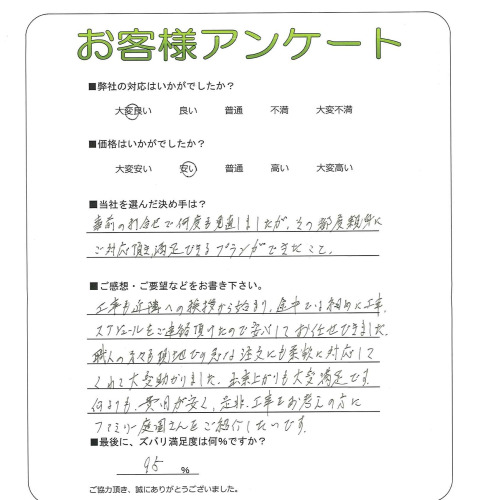 お客様アンケート
■弊社の対応はいかがでしたか？
大変良い 良い 普通 不満 大変不満
■価格はいかがでしたか？
大変安い 安い 普通 高い 大変高い
■当社を選んだ決め手は？
事前の打合せで何度も見直しましたが、その都度親切に
ご対応頂き、満足できるプランができたこと。
■ご感想・ご要望などをお書き下さい。
工事も近隣への挨拶から始まり、途中では細めに工事
スケジュールをご連絡頂けたので安心してお任せできました。
職人の方々も現地での急な注文にも柔軟に対応して
くれて大変助かりました。出来上がりも大変満足です。
何よりも、費用が安く、是非、工事をお考えの方に
ファミリー庭園さんをご紹介したいです。
■最後に、ズバリ満足度は何％ですか？
95 %
ご協力頂き、誠にありがとうございました。